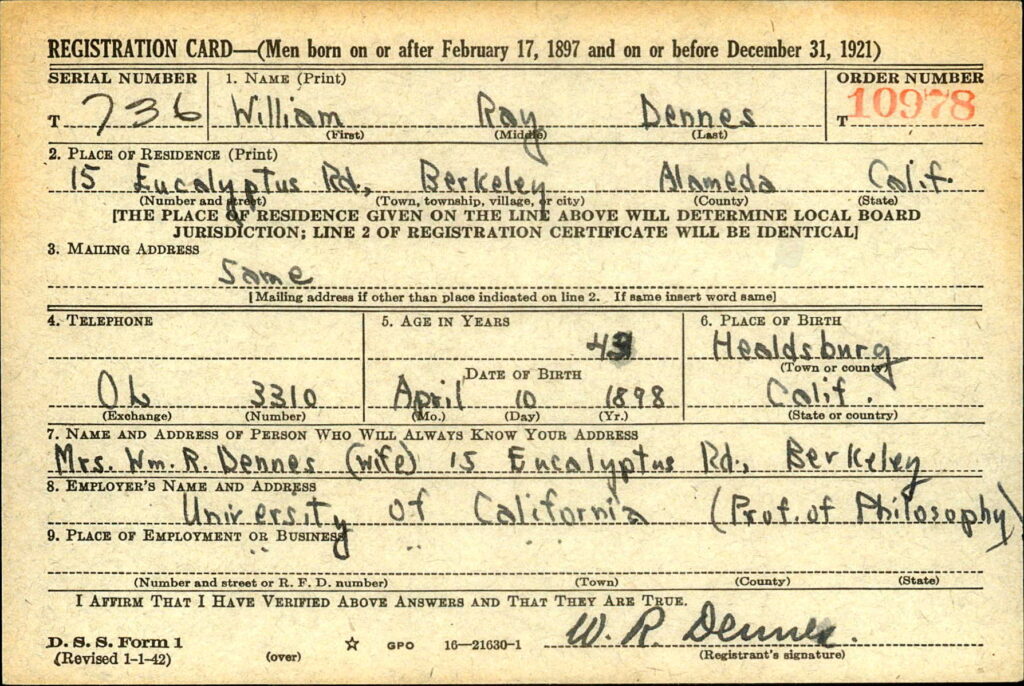 REGISTRATION CARD—(Men born on or after February 17, 1897 and on or before December 31, 1921)
SERIAL NUMBER 1. NAME (Print) ORDER NUMBER
T 736 William Ray Dennes T 10978
(First) (Middle) (Last)
2. PLACE OF RESIDENCE (Print)
15 Eucalyptus Rd., Berkeley Alameda Calif.
(Number and street) (Town, township, village, or city) (County) (State)
[THE PLACE OF RESIDENCE GIVEN ON THE LINE ABOVE WILL DETERMINE LOCAL BOARD
JURISDICTION; LINE 2 OF REGISTRATION CERTIFICATE WILL BE IDENTICAL]
3. MAILING ADDRESS
Same
[Mailing address if other than place indicated on line 2. If same insert word same]
4. TELEPHONE 5. AGE IN YEARS 6. PLACE OF BIRTH
43 Healdsburg
DATE OF BIRTH (Town or county)
OL 3310 April 10 1898 Calif.
(Exchange) (Number) (Mo.) (Day) (Yr.) (State or country)
7. NAME AND ADDRESS OF PERSON WHO WILL ALWAYS KNOW YOUR ADDRESS
Mrs. Wm. R. Dennes (wife) 15 Eucalyptus Rd., Berkeley
8. EMPLOYER'S NAME AND ADDRESS
University of California (Prof. of Philosophy)
9. PLACE OF EMPLOYMENT OR BUSINESS
" " "
(Number and street or R. F. D. number) (Town) (County) (State)
I AFFIRM THAT I HAVE VERIFIED ABOVE ANSWERS AND THAT THEY ARE TRUE.
W. R. Dennes.
D. S. S. Form 1
(Revised 1-1-42) (over) ☆ GPO 16—21630-1 (Registrant's signature)